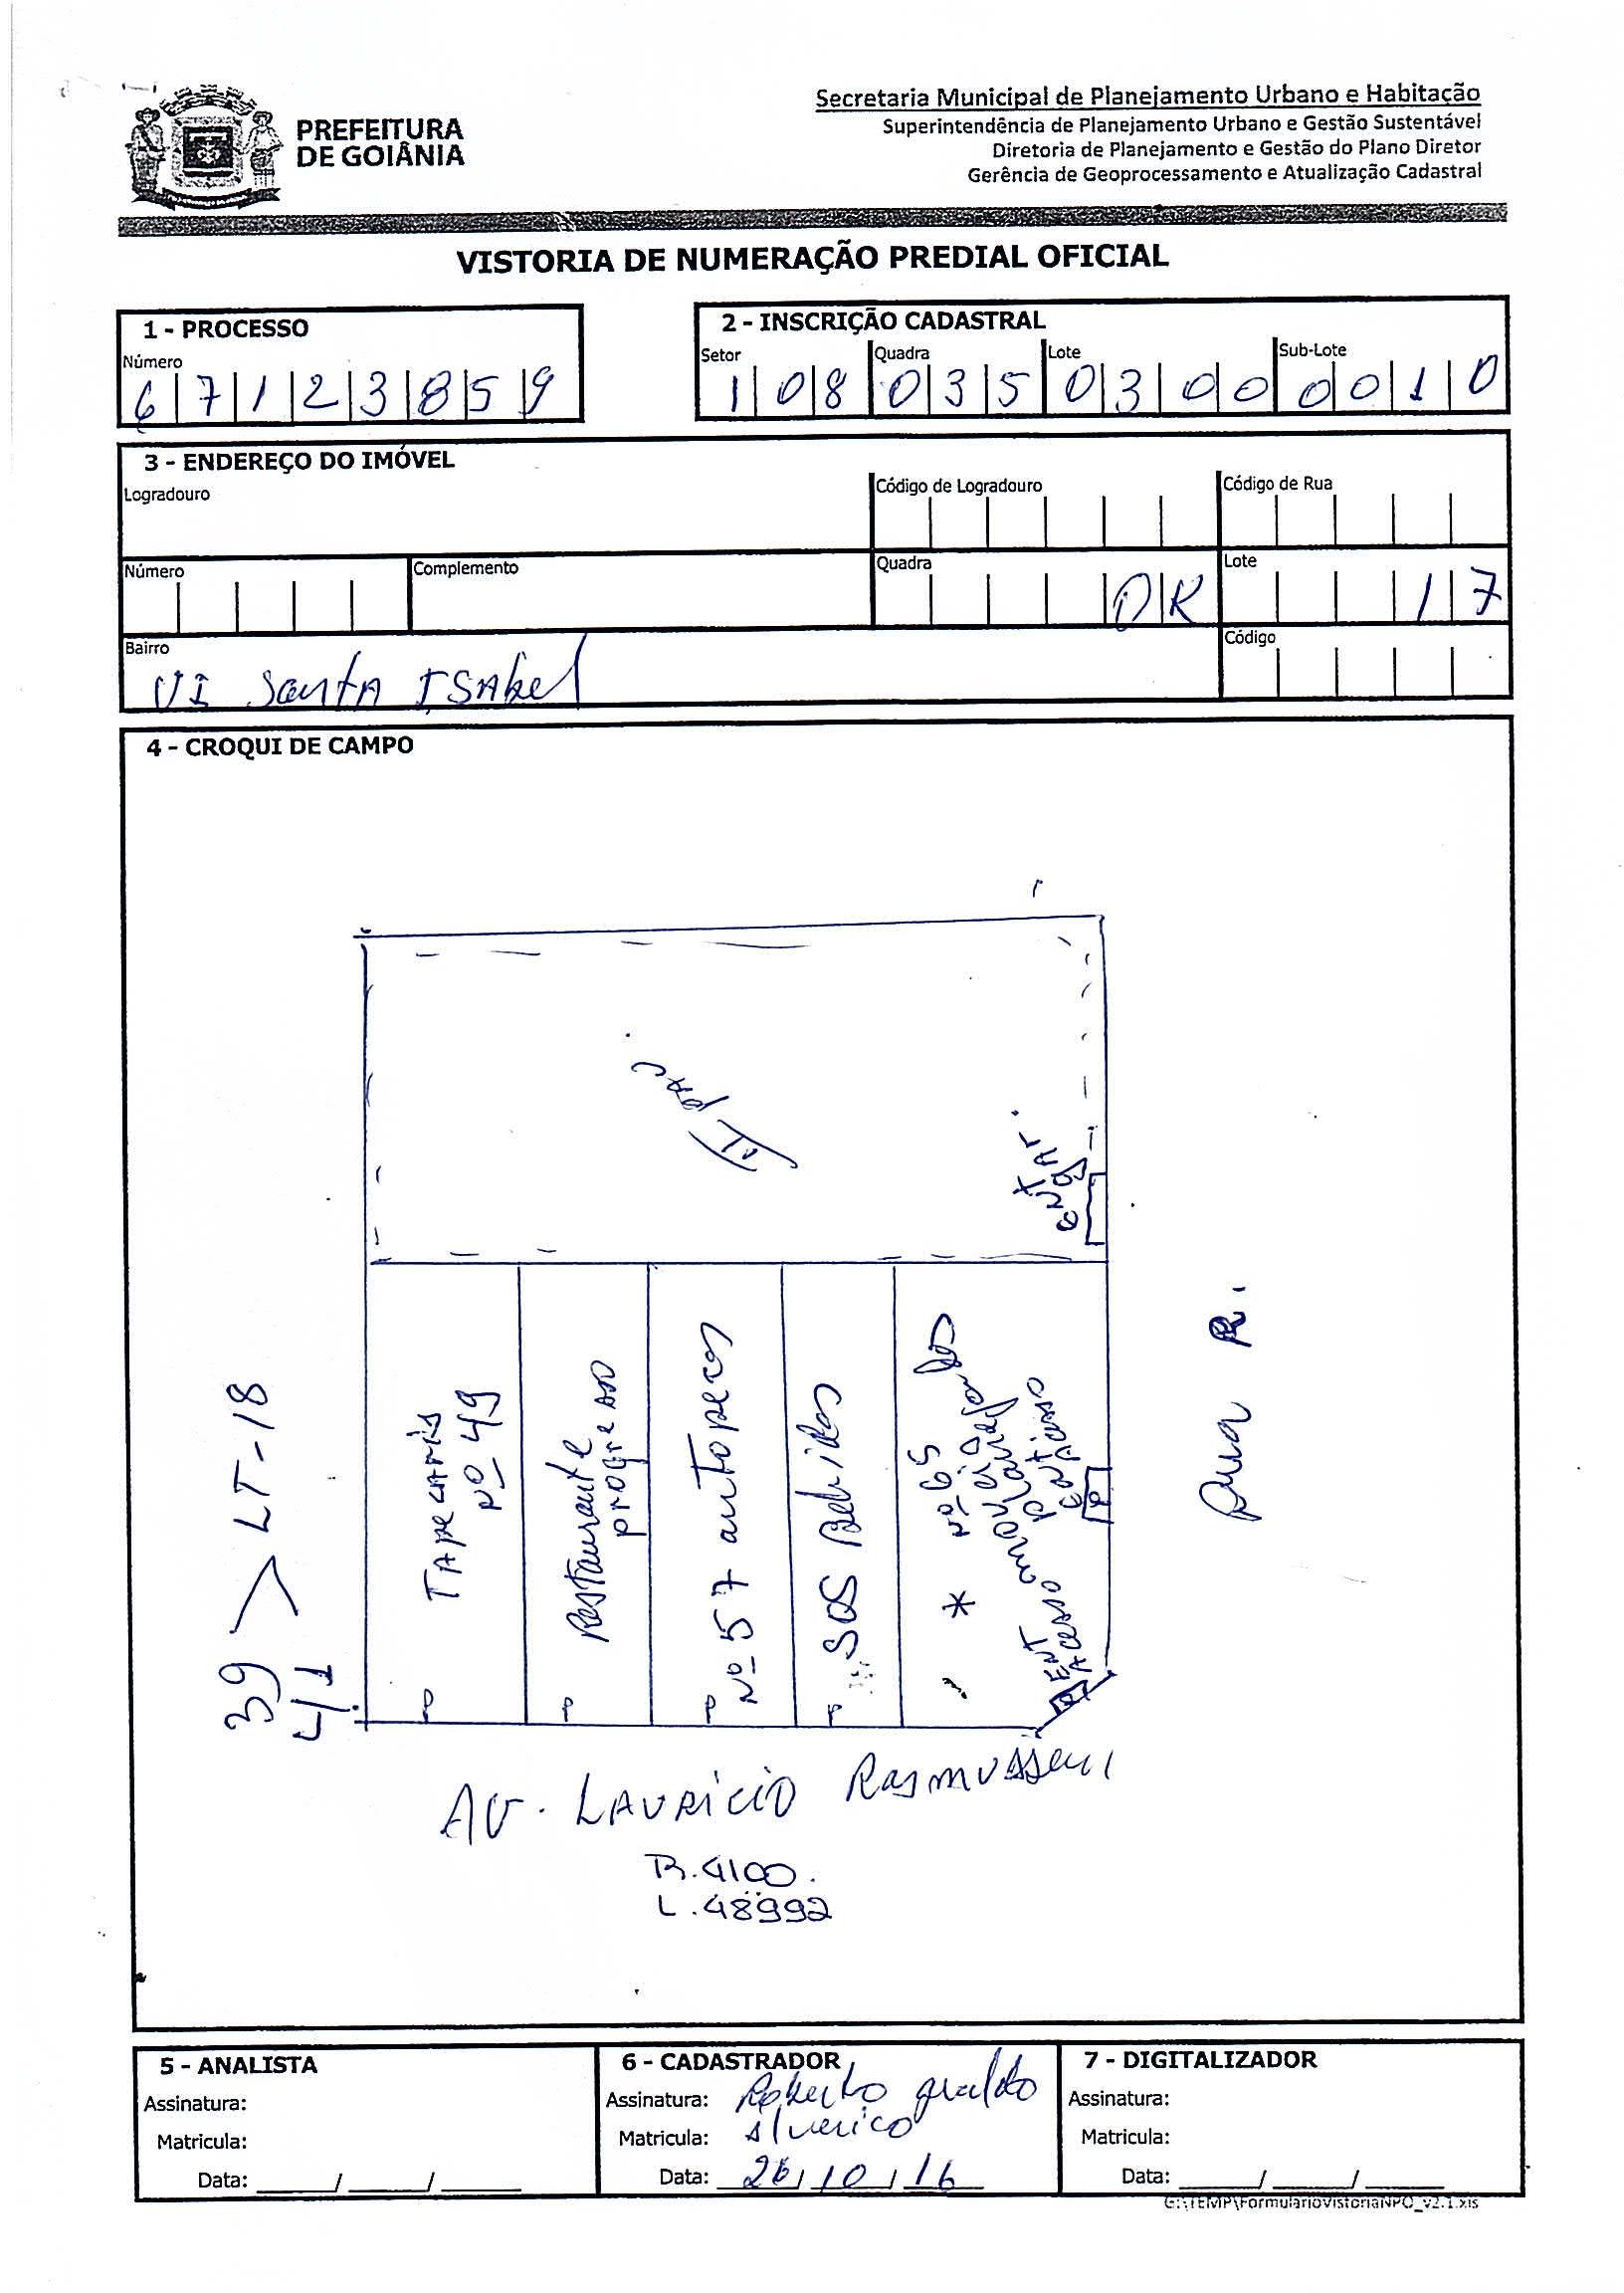 PREFEITURA
DE GOIÂNIA
Secretaria Municipal de Planejamento Urbano e Habitação
Superintendência de Planejamento Urbano e Gestão Sustentável
Diretoria de Planejamento e Gestão do Plano Diretor
Gerência de Geoprocessamento e Atualização Cadastral
VISTORIA DE NUMERAÇÃO PREDIAL OFICIAL
1 - PROCESSO
Número
67123859
2 - INSCRIÇÃO CADASTRAL
Setor Quadra Lote Sub-Lote
108 035 0300 0010
3 - ENDEREÇO DO IMÓVEL
Logradouro
Código de Logradouro
Código de Rua
Número
Complemento
Quadra
Lote
17
Bairro
VI Santa ISAbel
Código
4 - CROQUI DE CAMPO
II PAV.
39 > LT-18
41
Nº 49
Restaurante
Nº 57 autopecas
SOS Bebidas
* Nº 65
Rua R.
AV. LAURICIO RASMUSSEN
R. 4100.
L. 48992
5 - ANALISTA
Assinatura:
Matricula:
Data: ____/____/____
6 - CADASTRADOR
Assinatura: Roberto
Matricula:
Data: 26/10/16
7 - DIGITALIZADOR
Assinatura:
Matricula:
Data: ____/____/____
G:\TEMP\FormularioVistoriaNPO_v2.1.xls